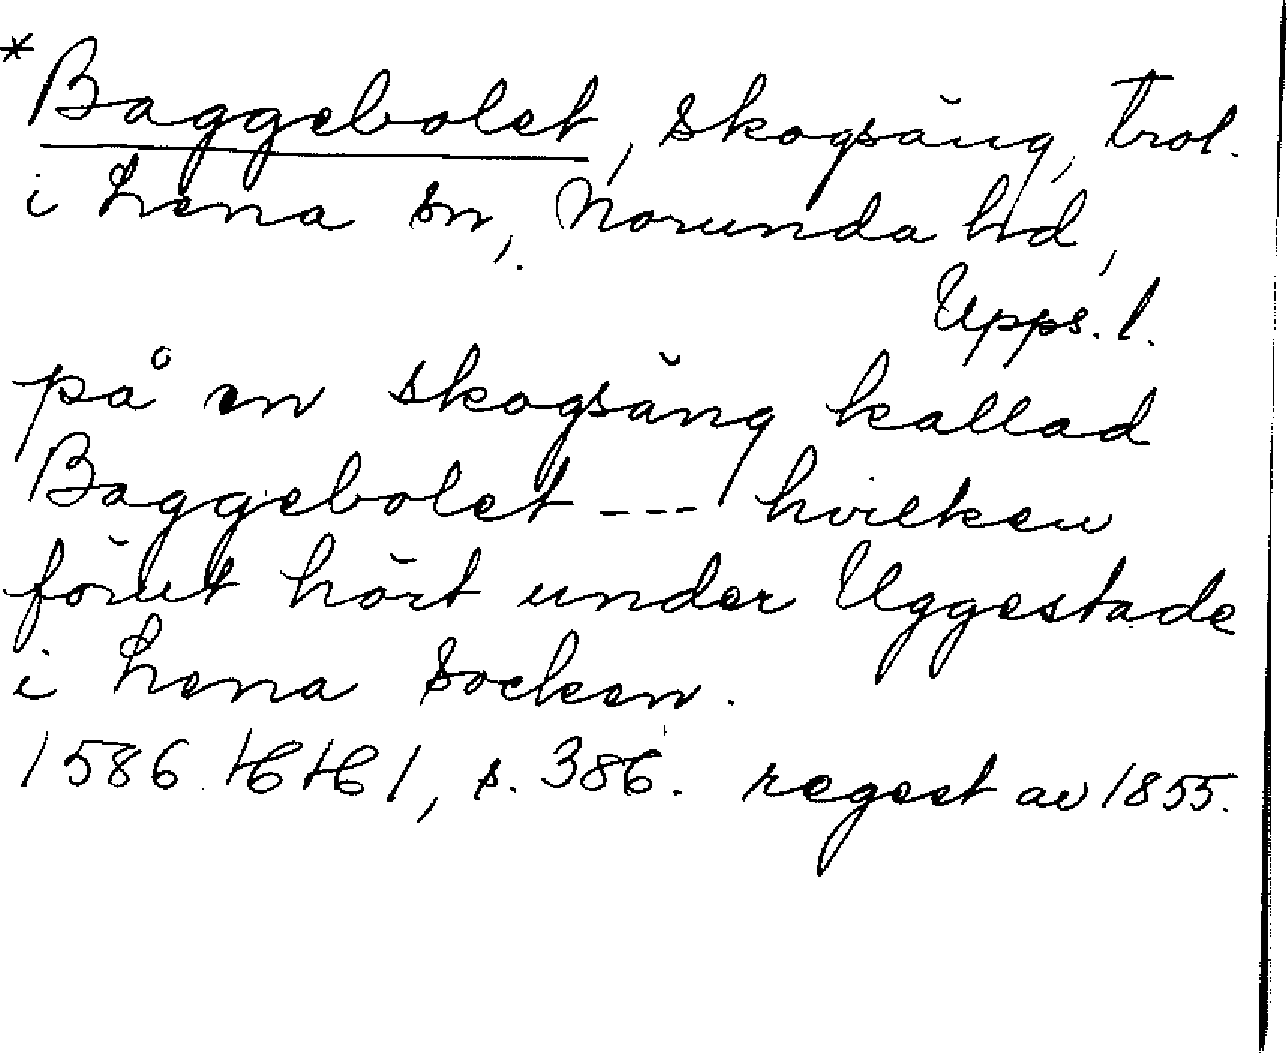 *Baggebolet, skogsäng, trol.
i Lena sn, Norunda hd,
Upps. l.
på en skogsäng kallad
Baggebolet --- hvilken
förut hört under Uggestade
i Lena Socken.
1586. HH 1, s. 386. regest av 1855.